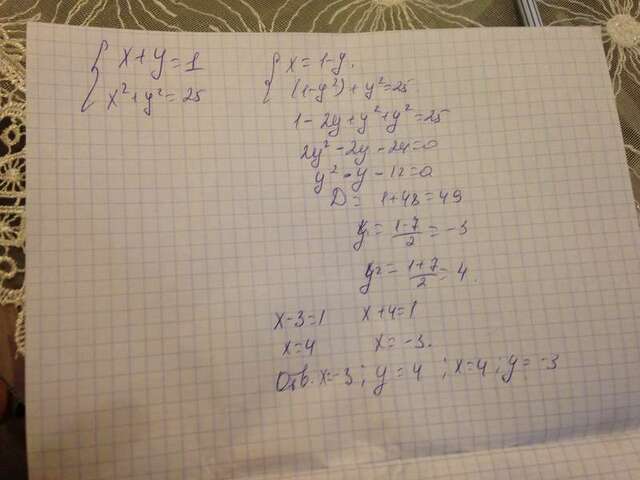 { x + y = 1
x² + y² = 25
{ x = 1-y.
(1-y²) + y² = 25
1 - 2y + y² + y² = 25
2y² - 2y - 24 = 0
y² - y - 12 = 0
D = 1 + 48 = 49
y₁ = 1-7/2 = -3
y₂ = 1+7/2 = 4.
x - 3 = 1 x + 4 = 1
x = 4 x = -3.
Отв: x = -3; y = 4; x = 4; y = -3